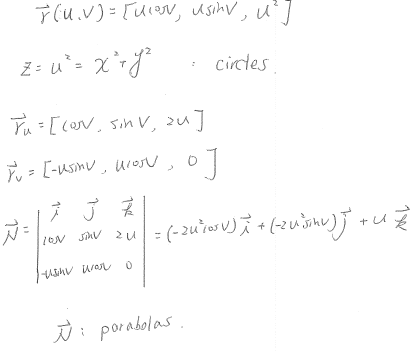 r⃗(u.v) = [ucosv, usinv, u²]
z = u² = x² + y² : circles.
r⃗u = [cosv, sinv, 2u]
r⃗v = [-usinv, ucosv, 0]
N⃗ = | i⃗ j⃗ k⃗ | cosv sinv 2u | -usinv ucosv 0 | = (-2u²cosv) i⃗ + (-2u²sinv) j⃗ + u k⃗
N⃗ : parabolas.